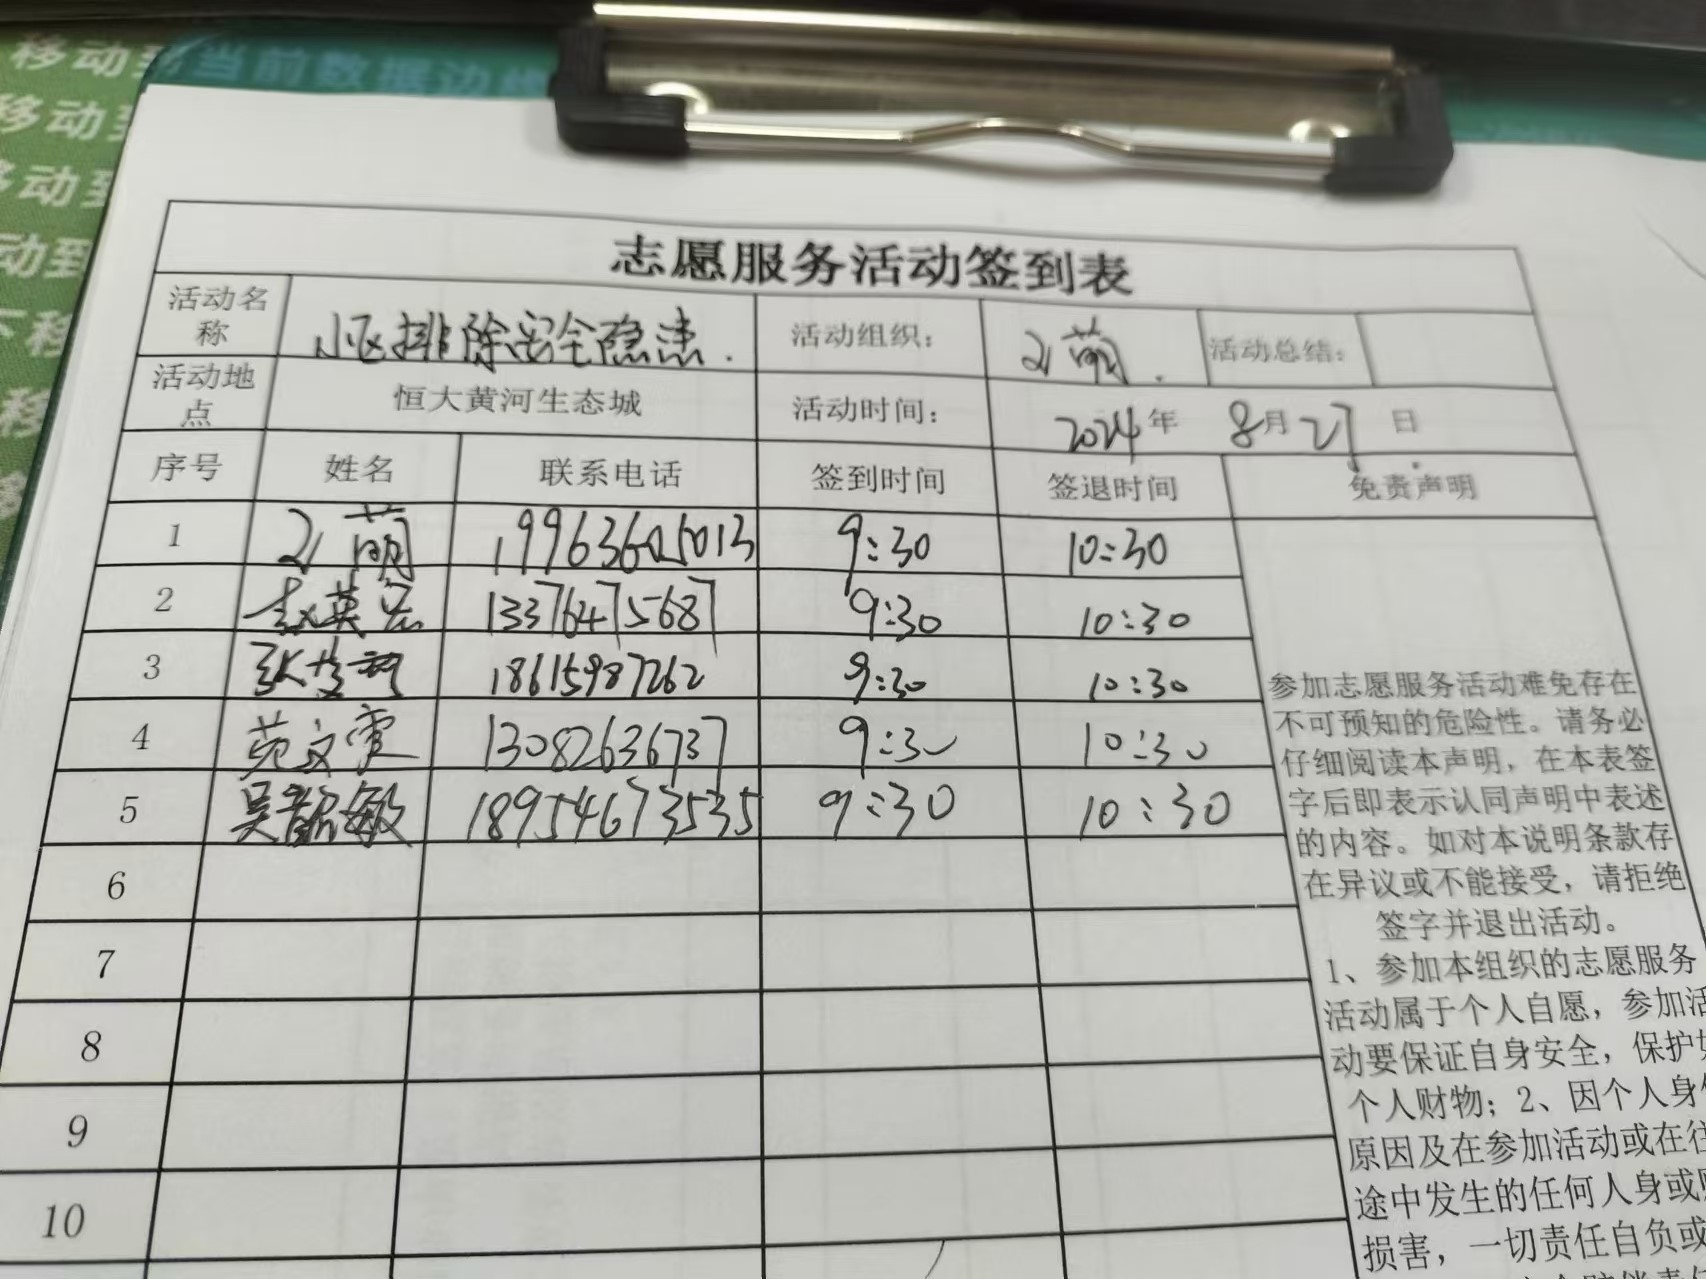 移动到当前数据边缘
移动到
移动到
动到
不移
移
志愿服务活动签到表
活动名称 小区排除安全隐患. 活动组织: 萌. 活动总结:
活动地点 恒大黄河生态城 活动时间: 2024年 8月27日
序号 姓名 联系电话 签到时间 签退时间 免责声明
1 萌 19963605013 9:30 10:30
2 赵英 13376475687 9:30 10:30
3 张 18615987262 9:30 10:30
4 范文霞 13082636737 9:30 10:30
5 吴韶敏 18954673535 9:30 10:30
6
7
8
9
10
参加志愿服务活动难免存在
不可预知的危险性。请务必
仔细阅读本声明,在本表签
字后即表示认同声明中表述
的内容。如对本说明条款存
在异议或不能接受,请拒绝
签字并退出活动。
1、参加本组织的志愿服务
活动属于个人自愿,参加活
动要保证自身安全,保护好
个人财物;2、因个人身体
原因及在参加活动或在往
途中发生的任何人身或财
损害,一切责任自负或